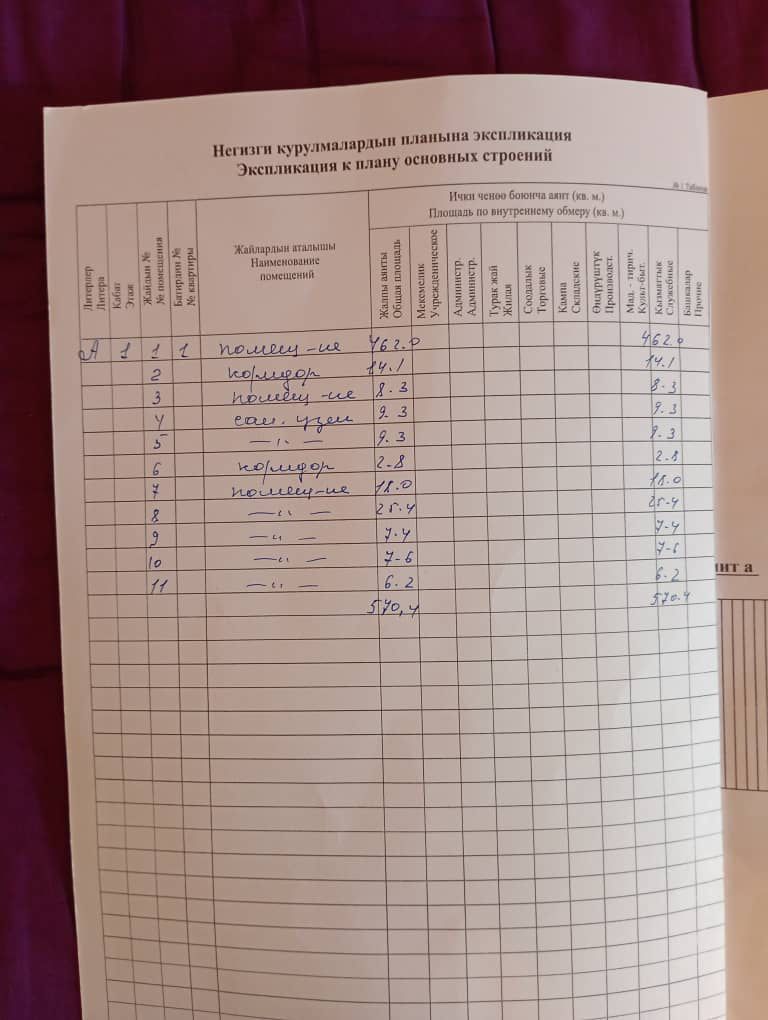 Негизги курулмалардын планына экспликация
Экспликация к плану основных строений
№ 1 Таблица
Ички ченөө боюнча аянт (кв. м.)
Площадь по внутреннему обмеру (кв. м.)
Литерлер Литера
Кабат Этаж
Жайдын № № помещения
Батирдин № № квартиры
Жайлардын аталышы Наименование помещений
Жалпы аянты Общая площадь
Мекемелик Учрежденическое
Администр. Администр.
Турак жай Жилая
Соодалык Торговые
Кампа Складские
Өндүрүштүк Производст.
Мад. - тирич. Культ-быт.
Кызматтык Служебные
Башкалар Прочие
А 1 1 1 помещ-ие 462.0 462.0
2 коридор 14.1 14.1
3 помещ-ие 8.3 8.3
4 сан. узел 9.3 9.3
5 —〃— 9.3 9.3
6 коридор 2.8 2.8
7 помещ-ие 18.0 18.0
8 —〃— 25.4 25.4
9 —〃— 7.4 7.4
10 —〃— 7-6 7-6
11 —〃— 6.2 6.2
570,4 570.4